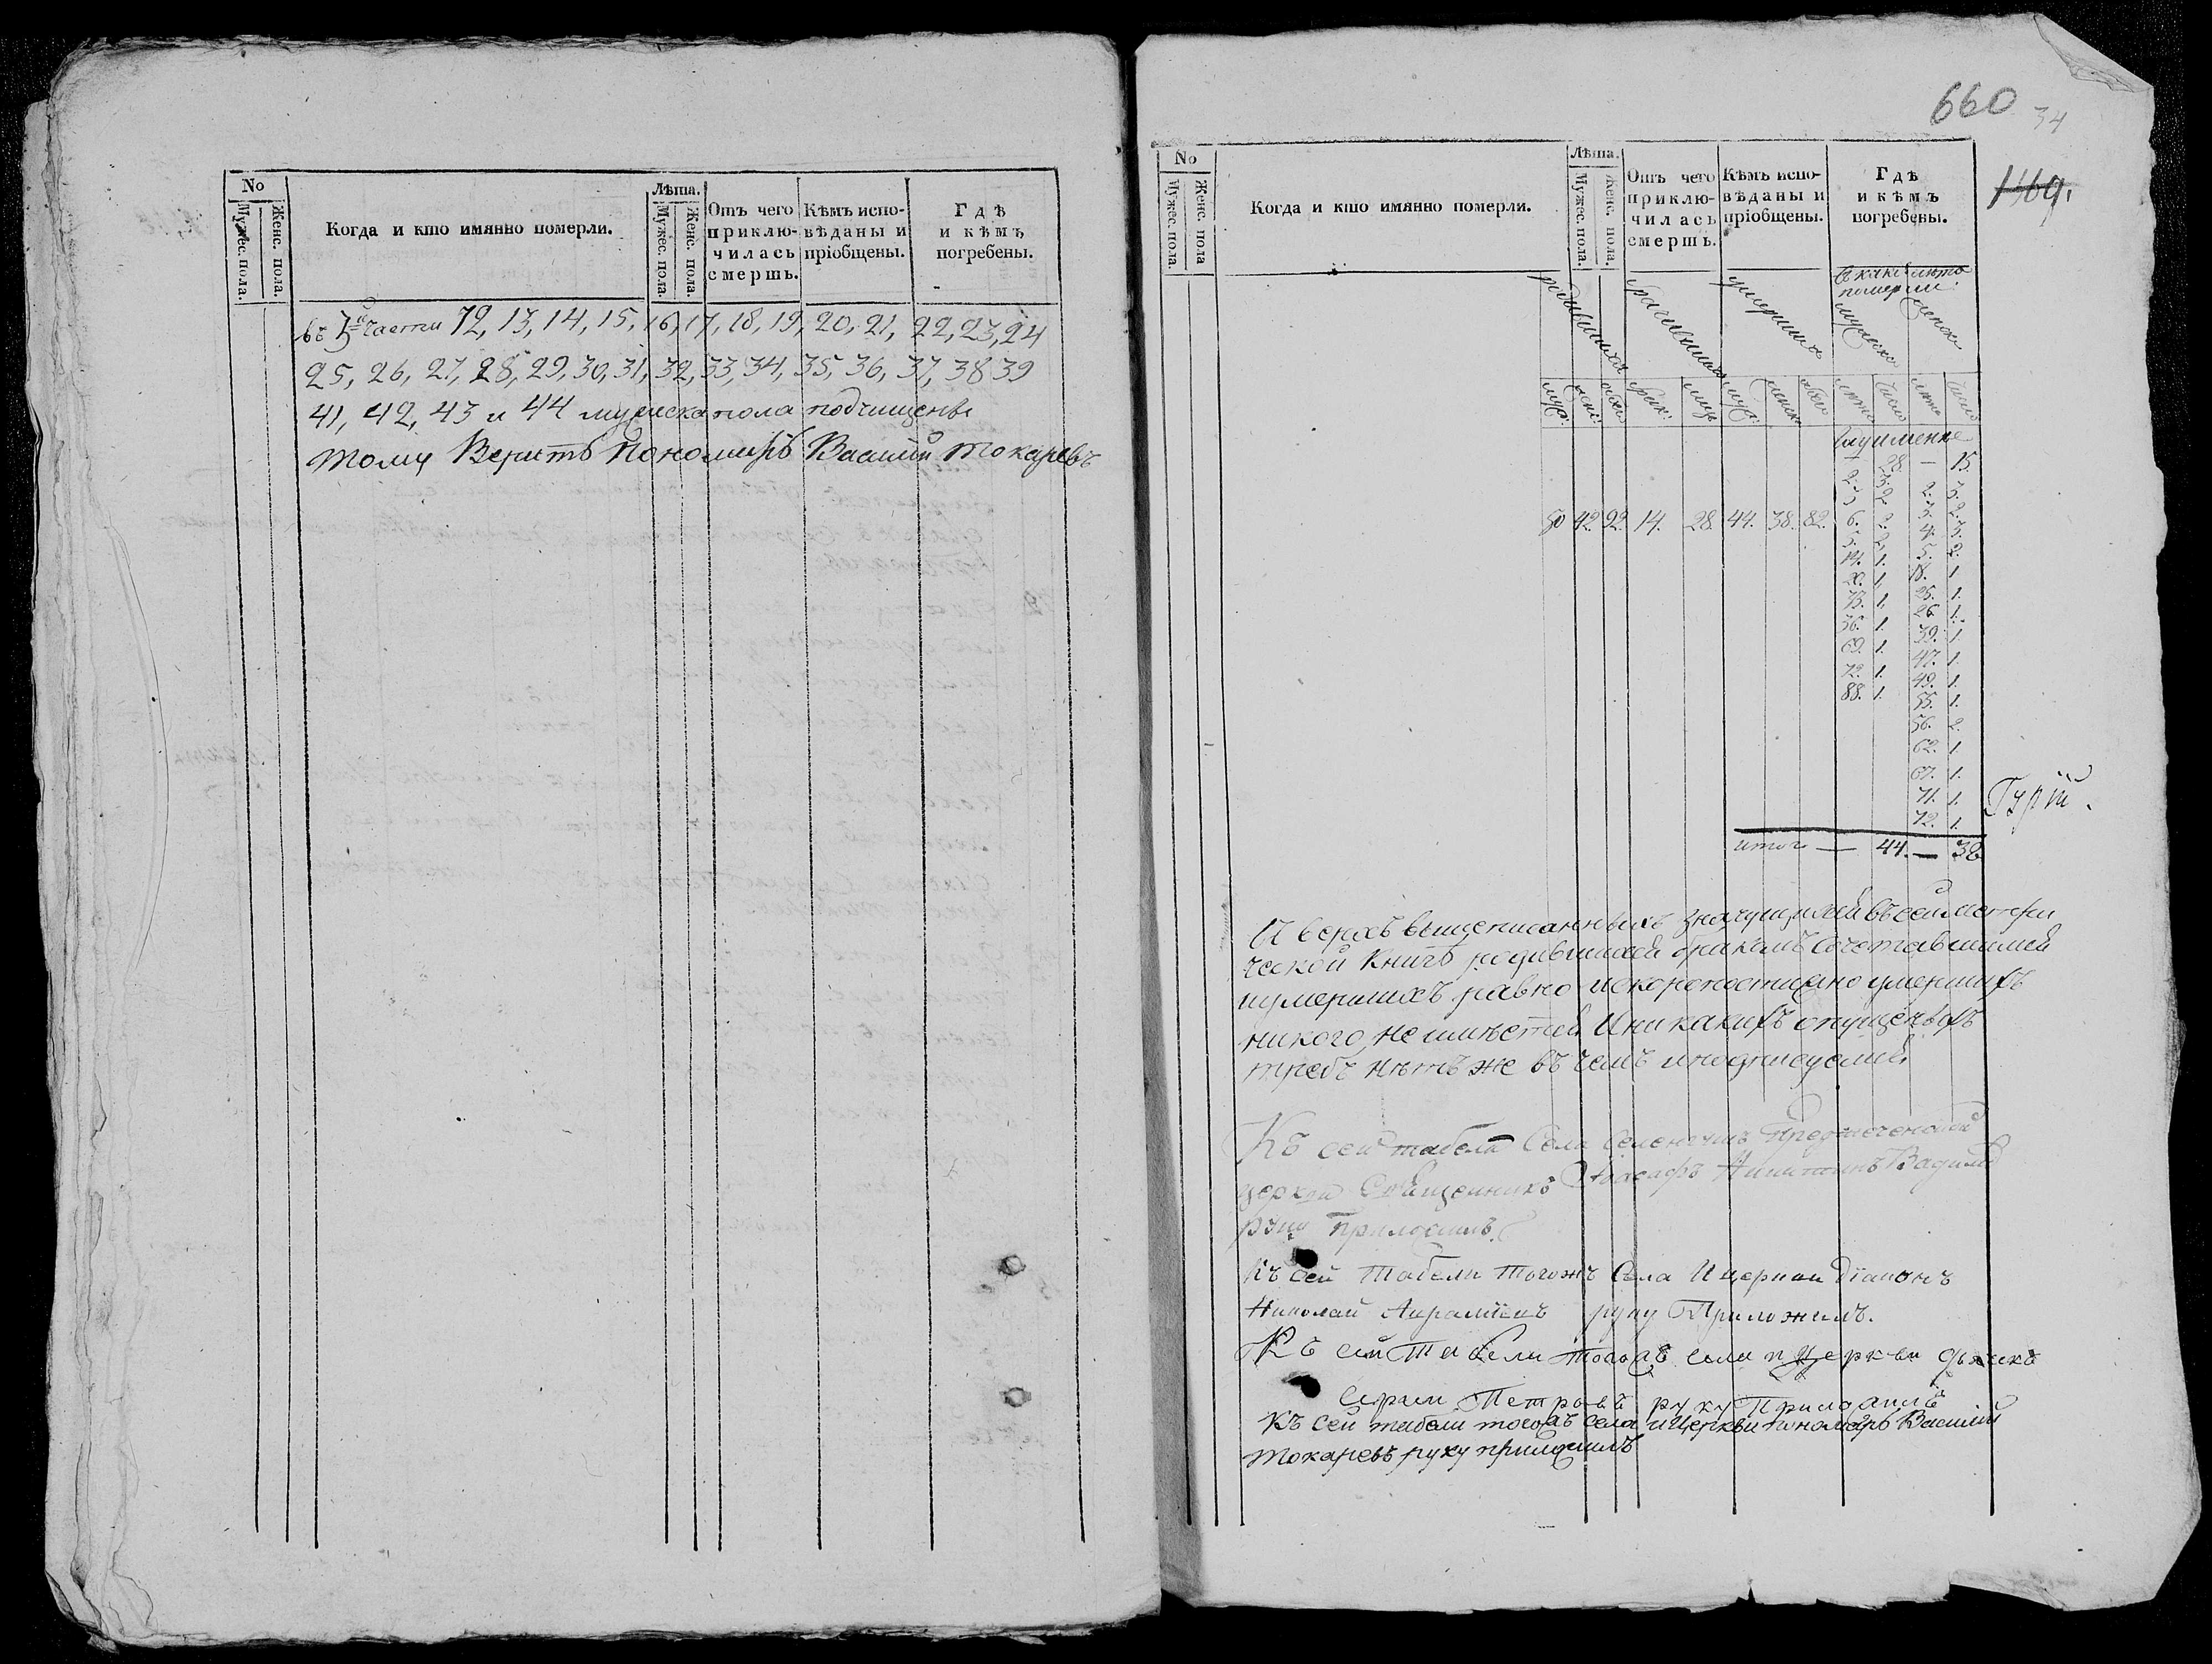 No
Мужес. пола.
Женс. пола.
Когда и кто имянно померли.
Лѣта.
Мужес. пола.
Женс. пола.
Отъ чего
приклю-
чилась
смерть.
Кѣмъ испо-
вѣданы и
пріобщены.
Гдѣ
и кѣмъ
погребены.
въ 3й части 12, 13, 14, 15, 16, 17, 18, 19, 20, 21, 22, 23, 24
25, 26, 27, 28, 29, 30, 31, 32, 33, 34, 35, 36, 37, 38 39
41, 42, 43 и 44 мужеска пола подчищенъ
тому Верить Пономарь Василий Токаревъ
660
34
1169.
No
Мужес. пола.
Женс. пола
Когда и кто имянно померли.
Лѣта.
Мужес. пола.
Женс. пола.
Отъ чего
приклю-
чилась
смерть.
Кѣмъ испо-
вѣданы и
пріобщены.
Гдѣ
и кѣмъ
погребены.
родившихся
умершихъ
померли
мужеска
женска
муж: женс: обое брак: лицъ муж: женск: обое лета число лета число
— 28. — 15.
2. 3. 2. 3.
3. 2. 3. 2.
50 42. 92. 14. 28. 44. 38. 82. 6. 2. 4. 3.
5. 2. 5. 2.
14. 1. 18. 1
20. 1. 25. 1.
33. 1. 26. 1.
36. 1. 39. 1.
69. 1. 47. 1.
72. 1. 49. 1.
88. 1. 55. 1.
56. 2.
62. 1.
67. 1.
71. 1.
72. 1.
Гурій.
итого — 44. — 38
И верхъ вышеписанныхъ значущихся въ сей метри
ческой книгѣ родившихся бракомъ сочетавшихся
и умершихъ равно и скоропостижно умершихъ
никого не имѣется и никакихъ опущеныхъ
требъ нѣтъ же въ чемъ и подписуемся
Къ сей табели Села Предтеченской
церкви Священникъ Иоасафъ Никитинъ
руку приложилъ.
Къ сей Табели тогожъ Села И церкви Діаконъ
Николай руку Приложилъ.
Къ сей Табели тогожъ села и Церкви дьячекъ
Петровъ руку Приложилъ
Къ сей табели тогожъ села и Церкви пономарь Василий
Токаревъ руку приложилъ